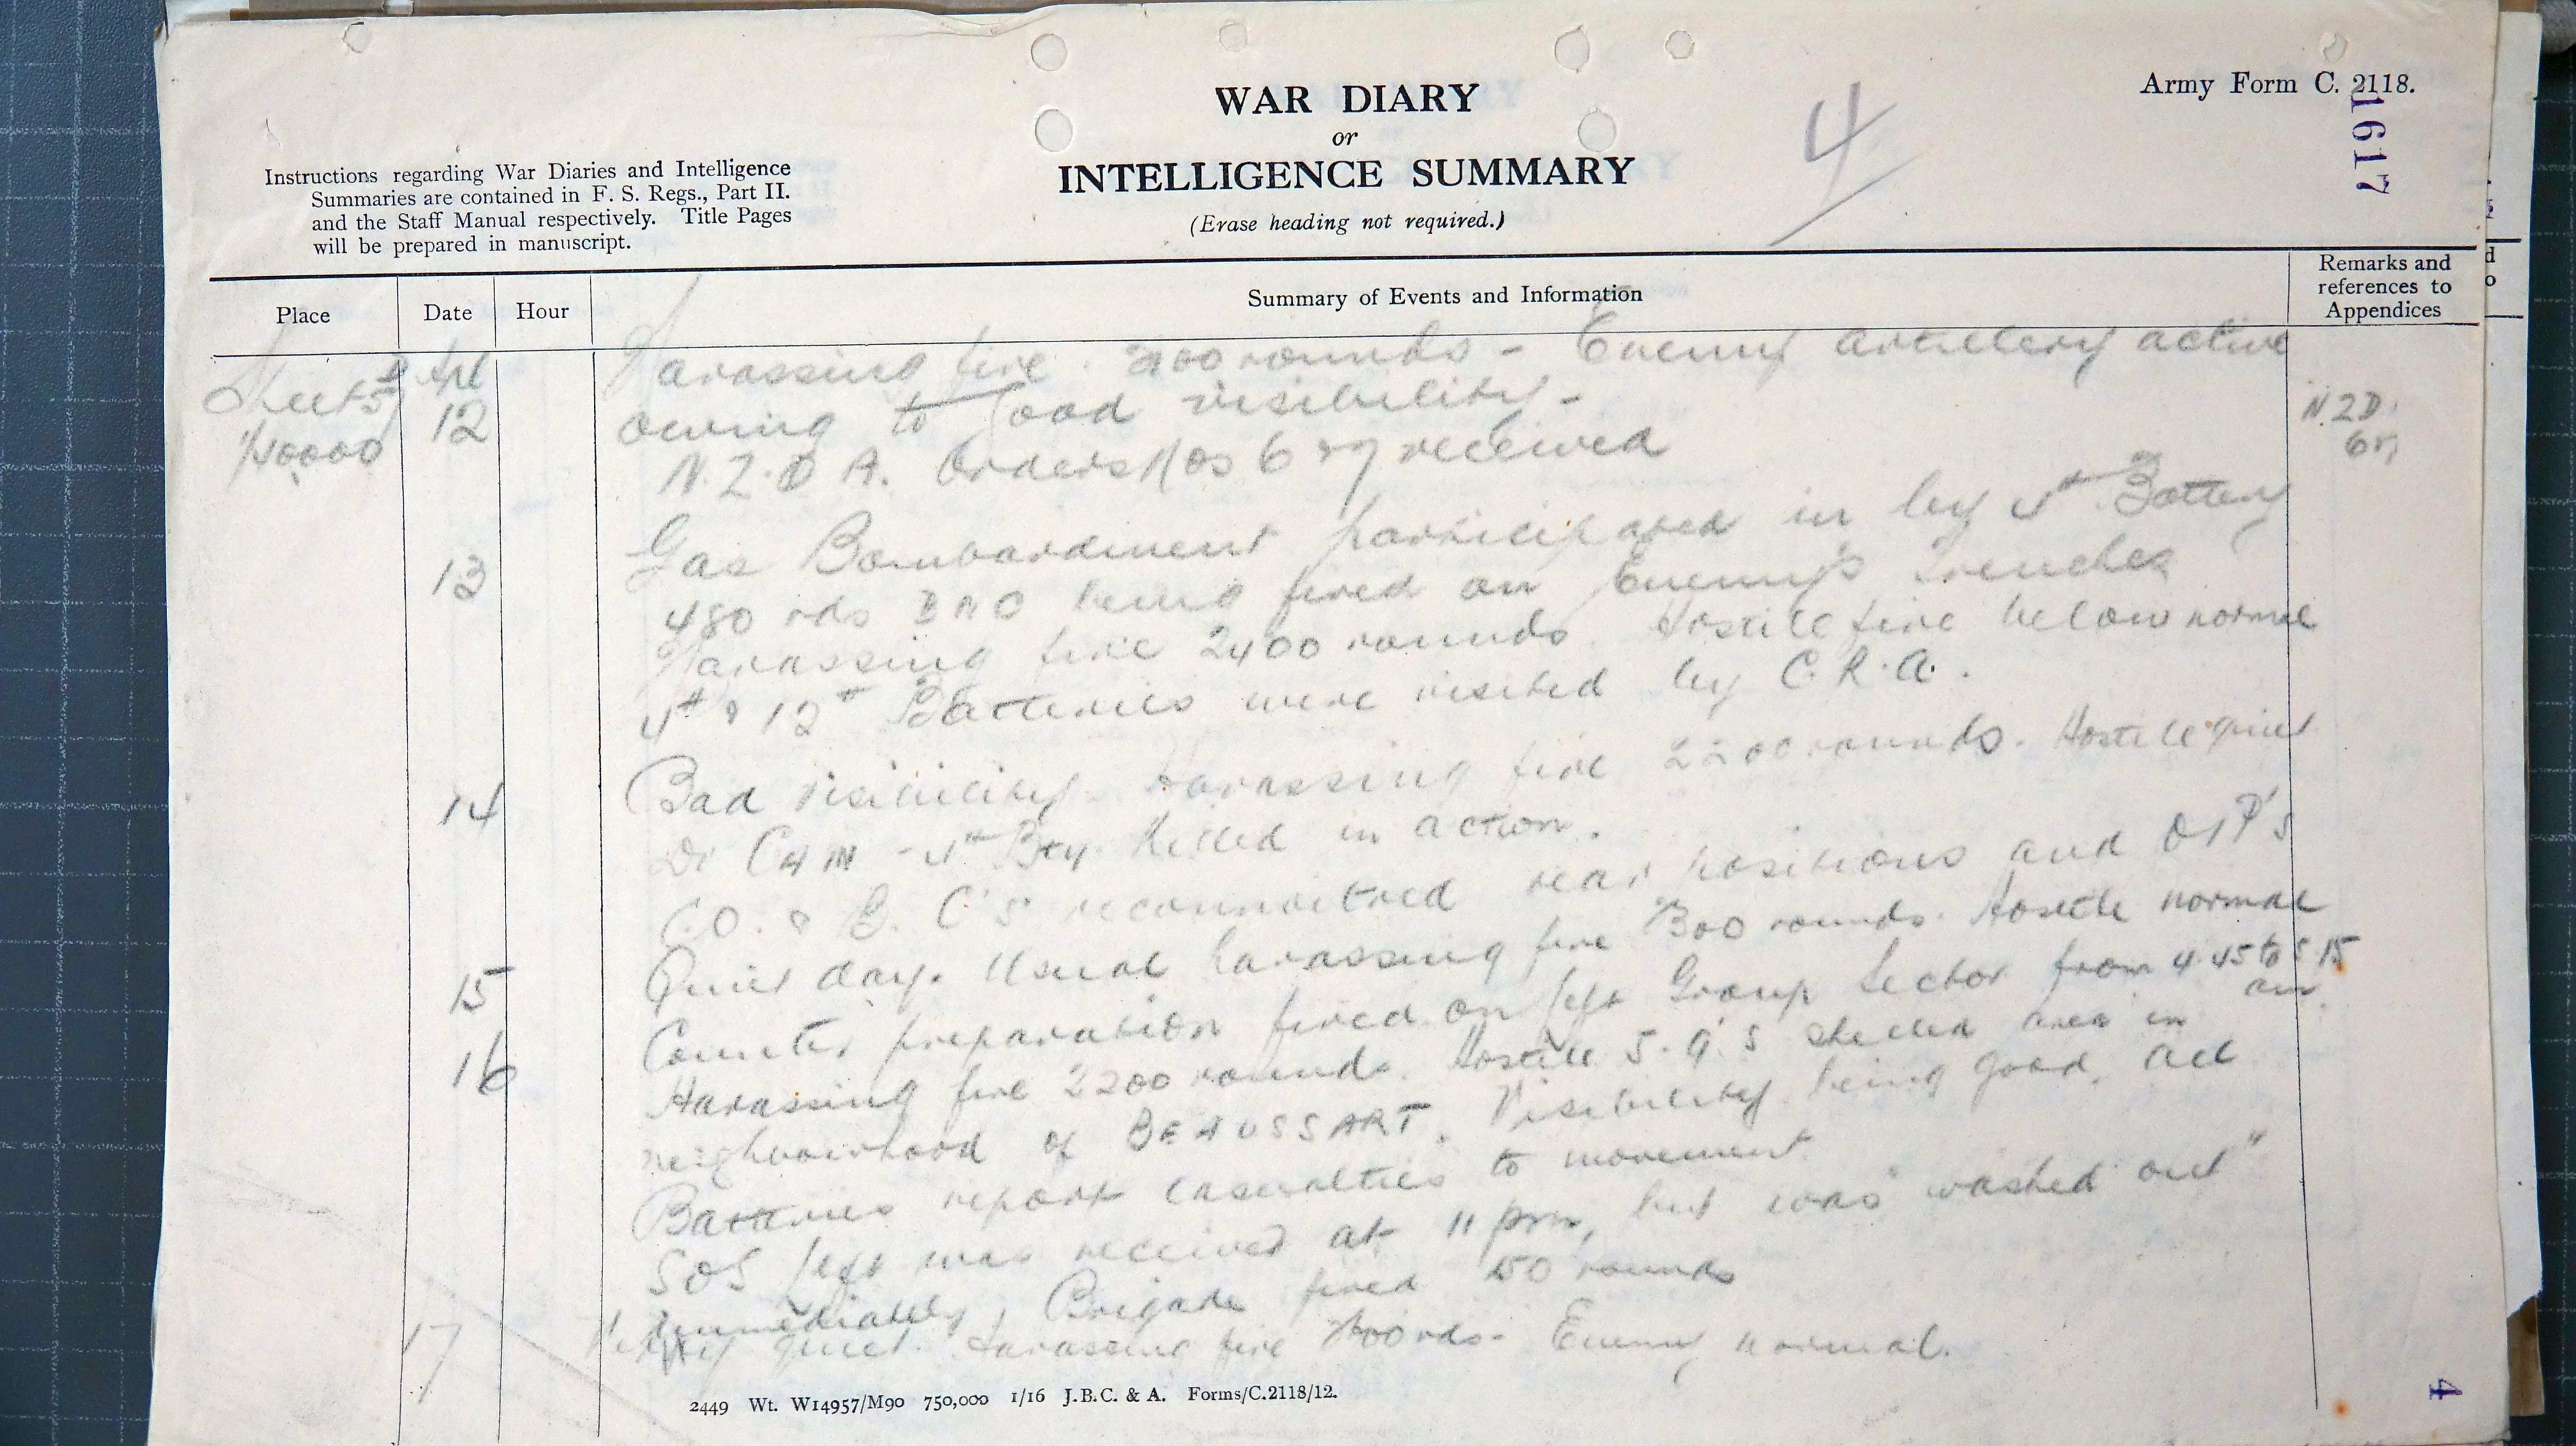 WAR DIARY
or
INTELLIGENCE SUMMARY
(Erase heading not required.)
Army Form C. 2118.
1617
4
Instructions regarding War Diaries and Intelligence
Summaries are contained in F. S. Regs., Part II.
and the Staff Manual respectively. Title Pages
will be prepared in manuscript.
Place
Date
Hour
Summary of Events and Information
Remarks and
references to
Appendices
Sheet 57D
1/40000
Apl
12
Harassing fire rounds - Enemy artillery active
owing to good visibility -
N.Z.D.A. Orders Nos 6 & 7 received
N.Z.D.
6 & 7
13
Gas Bombardment participated in by 4th Battery
480 rds BNC being fired on Enemy's Trenches
Harassing fire 2400 rounds Hostile fire below normal
4th & 12th Batteries were visited by C.R.A.
14
Bad visibility. Harassing fire 2200 rounds. Hostile quiet
Dr - 4th Bty. Killed in action.
C.O. & B.C's reconnoitred rear positions and O.P's
15
Quiet day. Usual harassing fire rounds. Hostile normal
16
Counter preparation fired on left Group Sector from 4.45 to 5.15
am.
Harassing fire 2200 rounds. Hostile 5.9's shelled area in
neighbourhood of BEAUSSART. Visibility being good, all
Batteries report casualties to movement
SOS left was received at 11 pm, but was "washed out"
immediately, Brigade fired 150 rounds
17
Very quiet. Harassing fire rds - Enemy normal.
2449 Wt. W14957/M90 750,000 1/16 J.B.C. & A. Forms/C.2118/12.
4